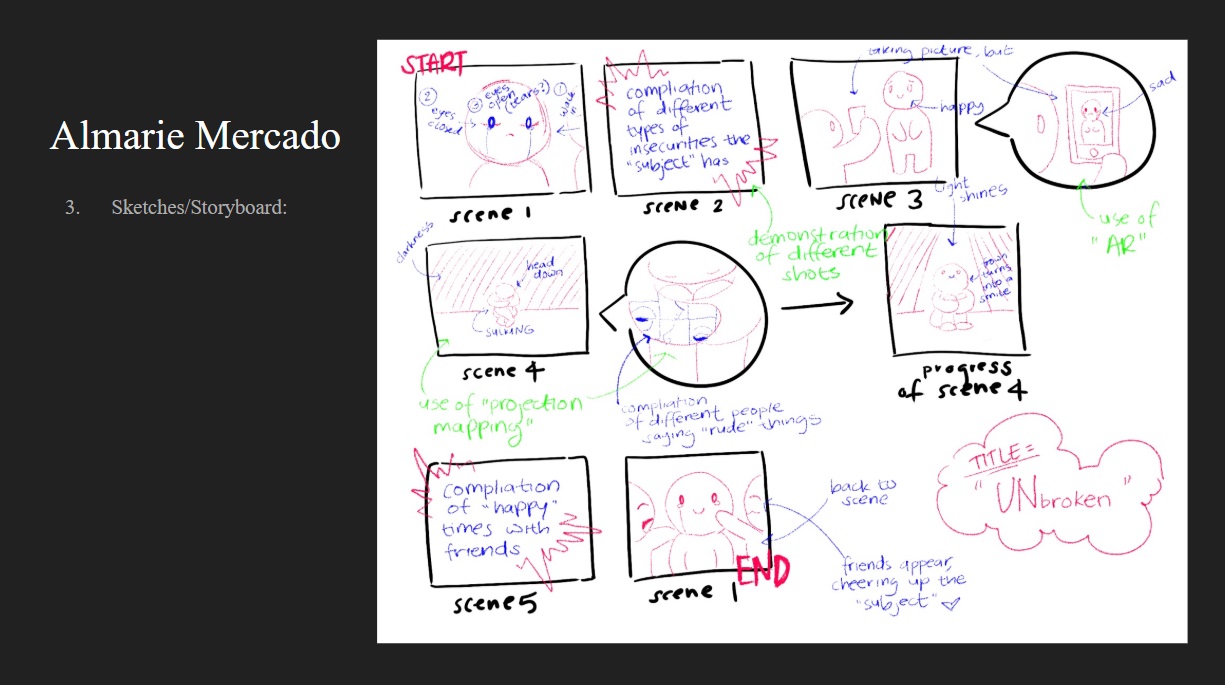 Almarie Mercado
3. Sketches/Storyboard:
START
②
eyes
closed
③ eyes
open
(tears?)
①
walk
in
scene 1
compliation
of different
types of
insecurities the
"subject" has
scene 2
demonstration
of different
shots
taking picture, but
happy
scene 3
sad
use of
"AR"
darkness
head
down
SULKING
scene 4
use of "projection
mapping"
compliation
of different people
saying "rude" things
light
shines
frown
turns
into a
smile
progress
of scene 4
Compliation
of "happy"
times with
friends
scene 5
END
scene 1
back to
scene
friends appear,
cheering up the
"subject"
TITLE =
"UNbroken"